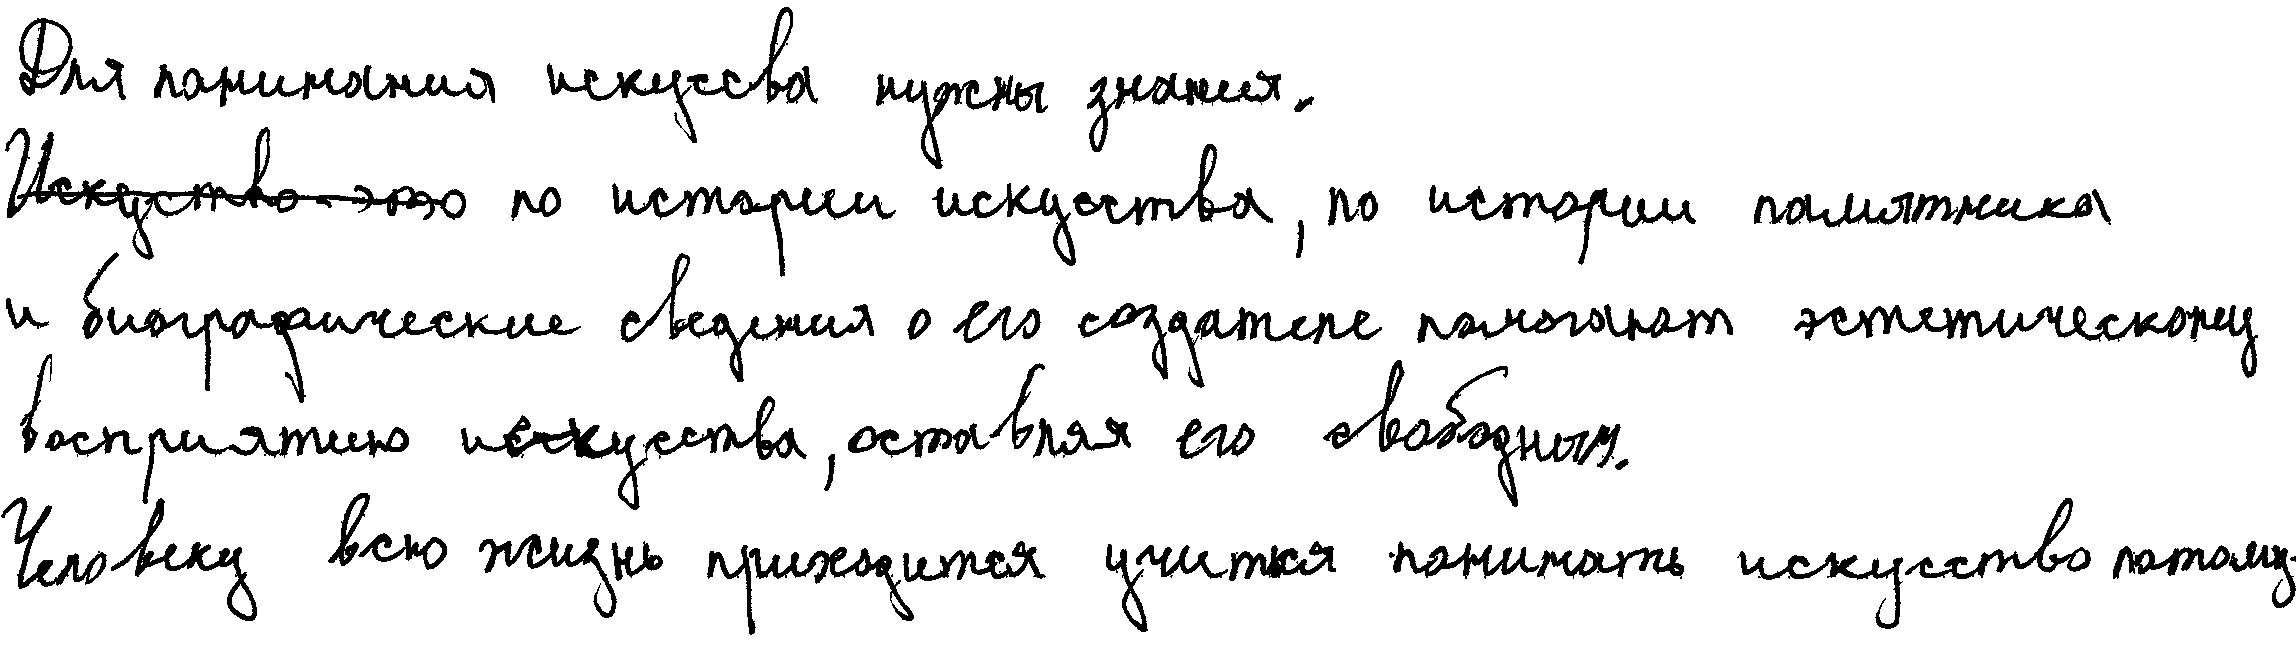 Для понимания искуссва нужны знания.
~~Искуство это~~ по истории искусства, по истории памятника
и биографические сведения о его создателе помогают эстетическому
восприятию искусства, оставляя его свободным.
Человеку всю жизнь приходится учиться понимать искусство потому-